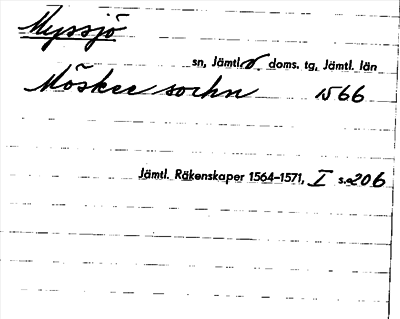 Myssjö
sn, Jämtl. v. doms. tg, Jämtl. län
Möskee sochn 1566
Jämtl. Räkenskaper 1564-1571, I s. 206